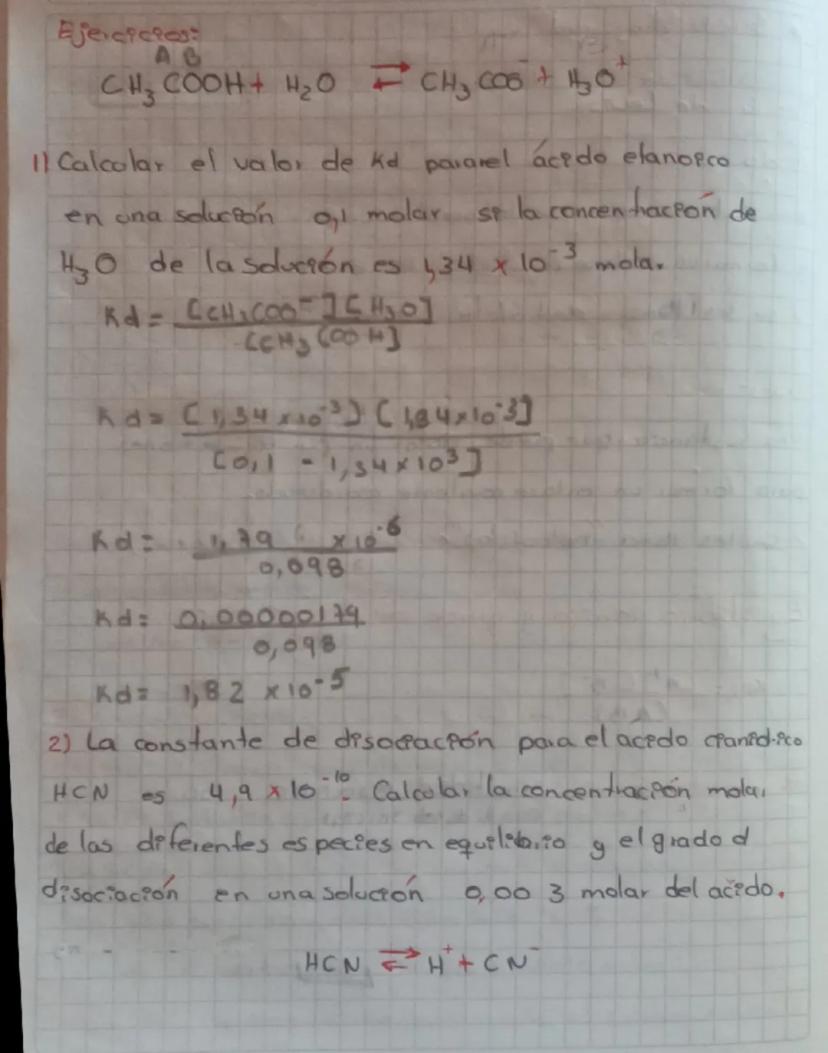 Ejercicios:
A B
CH₃COOH + H₂O ⇄ CH₃COO⁻ + H₃O⁺
1) Calcular el valor de Kd para el ácido etanoico
en una solución 0,1 molar si la concentración de
H₃O de la solución es 1,34 × 10⁻³ molar
Kd = [CH₃COO⁻][H₃O]
[CH₃COOH]
Kd = [1,34 × 10⁻³][1,34 × 10⁻³]
[0,1 - 1,34 × 10³]
Kd = 1,79 × 10⁻⁶
0,098
Kd = 0,00000179
0,098
Kd = 1,82 × 10⁻⁵
2) La constante de disociación para el acido cianid.ico
HCN es 4,9 × 10⁻¹⁰. Calcular la concentración molar
de las diferentes especies en equilibrio y el grado d
disociación en una solución 0,003 molar del acido.
HCN ⇄ H⁺ + CN⁻